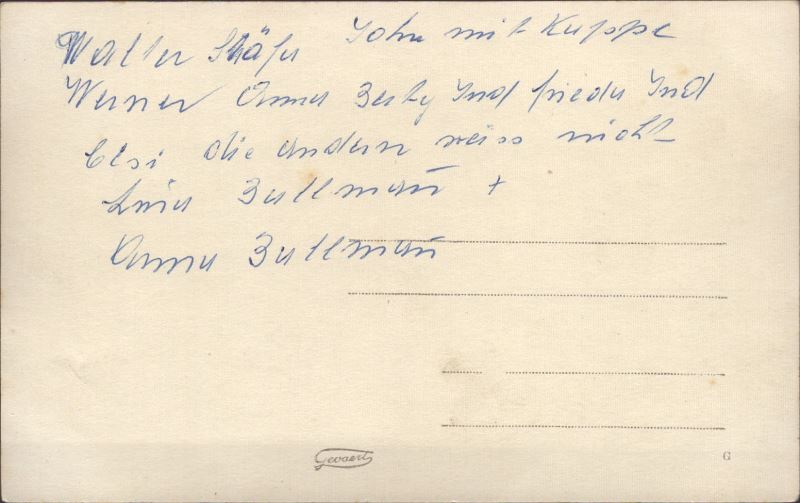 Walter Schäfer John mit Kuppe
Werner Anna Berty Und frieda Und
Elsi die andern weiss nicht
Lina Bullmann +
Anna Bullmann
Gevaert
G